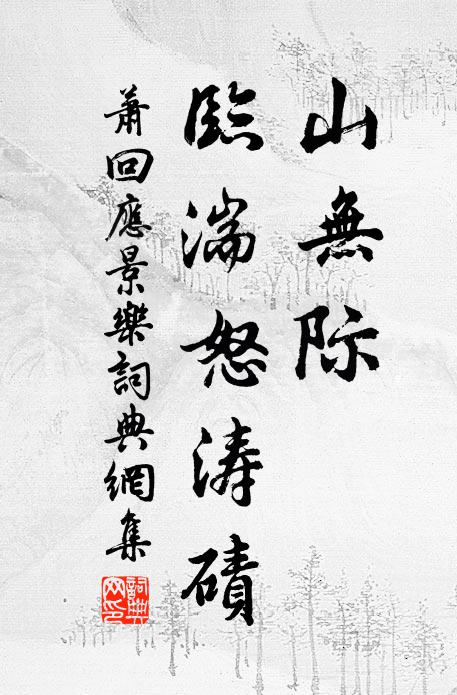 山無際
臨湍怒濤磧
蕭回應景樂詞典網集